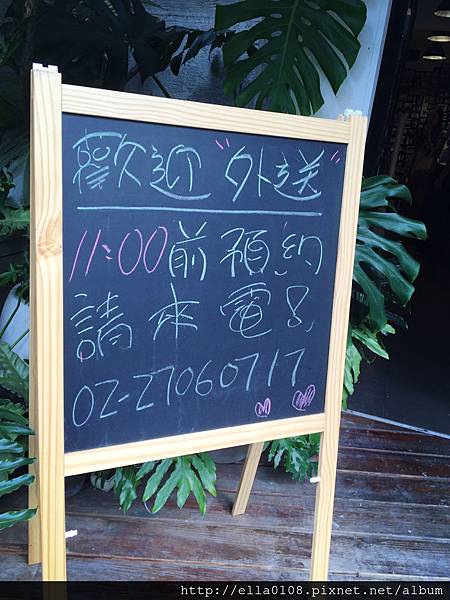 歡迎"外送"
11:00前預約
請來電
02-27060717
http://ella0108.pixnet.net/album